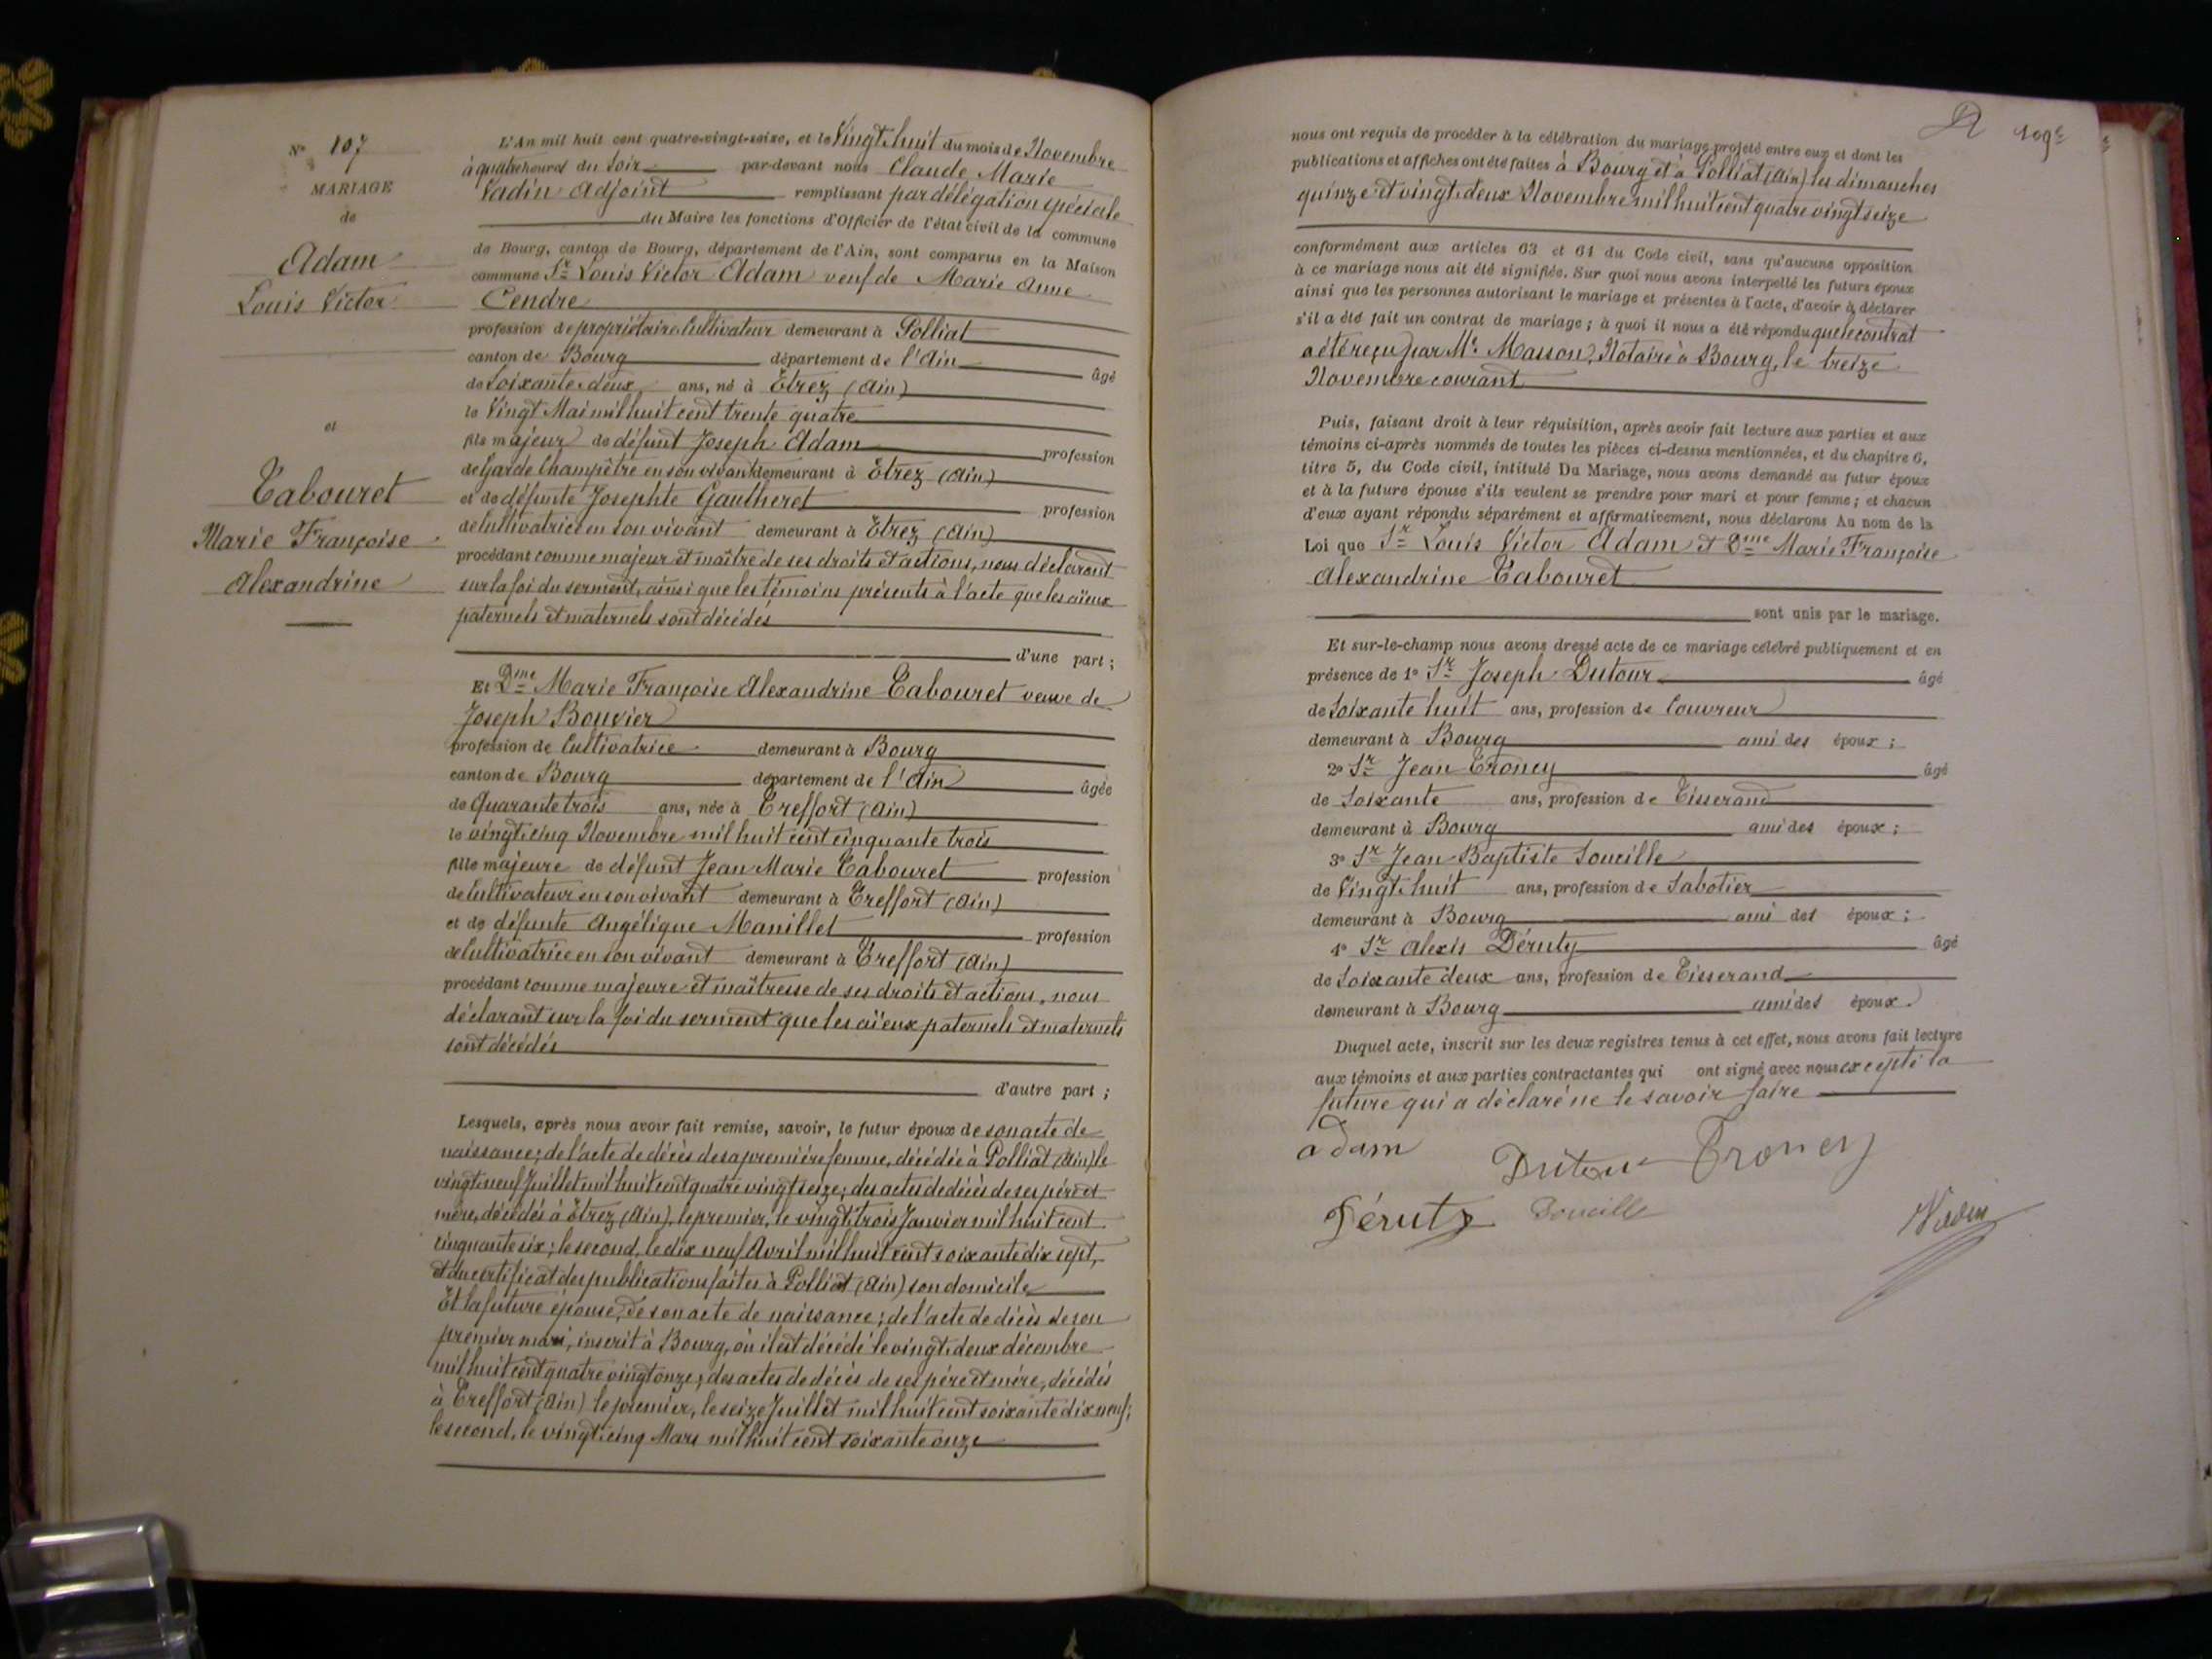 N° 107
MARIAGE
de
Adam
Louis Victor
et
Tabouret
Marie Françoise
Alexandrine
L'An mil huit cent quatre-vingt-seize, et le Vingt huit du mois de Novembre
à quatre heures du Soir par-devant nous Claude Marie
Vadin Adjoint remplissant par délégation spéciale
du Maire les fonctions d'Officier de l'état civil de la commune
de Bourg, canton de Bourg, département de l'Ain, sont comparus en la Maison
commune Sr Louis Victor Adam veuf de Marie Anne
Cendre
profession de propriétaire Cultivateur demeurant à Polliat
canton de Bourg département de l'Ain âgé
de Soixante deux ans, né à Etrez (Ain)
le Vingt Mai mil huit cent trente quatre
fils majeur de défunt Joseph Adam profession
de Garde Champêtre en son vivant demeurant à Etrez (Ain)
et de défunte Josephte Gautheret profession
de Cultivatrice en son vivant demeurant à Etrez (Ain)
procédant comme majeur et maître de ses droits et actions, nous déclarant
sur la foi du serment, ainsi que les témoins présents à l'acte que les aïeux
paternels et maternels sont décédés
d'une part ;
Et Dme Marie Françoise Alexandrine Tabouret veuve de
Joseph Bouvier
profession de Cultivatrice demeurant à Bourg
canton de Bourg département de l'Ain âgée
de Quarante trois ans, née à Treffort (Ain)
le vingt cinq Novembre mil huit cent cinquante trois
fille majeure de défunt Jean Marie Tabouret profession
de Cultivateur en son vivant demeurant à Treffort (Ain)
et de défunte Angélique Manillet profession
de Cultivatrice en son vivant demeurant à Treffort (Ain)
procédant comme majeure et maîtresse de ses droits et actions, nous
déclarant sur la foi du serment que les aïeux paternels et maternels
sont décédés
d'autre part ;
Lesquels, après nous avoir fait remise, savoir, le futur époux de son acte de
naissance; de l'acte de décès de sa première femme, décédée à Polliat (Ain) le
vingt neuf Juillet mil huit cent quatre vingt seize; des actes de décès de ses père et
mère, décédés à Etrez (Ain), le premier, le vingt trois Janvier mil huit cent
cinquante six; le second, le dix neuf Avril mil huit cent soixante dix sept,
et du certificat des publications faites à Polliat (Ain) son domicile
Et la future épouse, de son acte de naissance; de l'acte de décès de son
premier mari, inscrit à Bourg, où il est décédé le vingt deux décembre
mil huit cent quatre vingt onze; des actes de décès de ses père et mère, décédés
à Treffort (Ain) le premier, le seize Juillet mil huit cent soixante dix neuf;
le second, le vingt cinq Mars mil huit cent soixante onze
109e
nous ont requis de procéder à la célébration du mariage projeté entre eux et dont les
publications et affiches ont été faites à Bourg et à Polliat (Ain) les dimanches
quinze et vingt deux Novembre mil huit cent quatre vingt seize
conformément aux articles 63 et 64 du Code civil, sans qu'aucune opposition
à ce mariage nous ait été signifiée. Sur quoi nous avons interpellé les futurs époux
ainsi que les personnes autorisant le mariage et présentes à l'acte, d'avoir à déclarer
s'il a été fait un contrat de mariage ; à quoi il nous a été répondu que le contrat
a été reçu par Me Masson, Notaire à Bourg, le treize
Novembre courant
Puis, faisant droit à leur réquisition, après avoir fait lecture aux parties et aux
témoins ci-après nommés de toutes les pièces ci-dessus mentionnées, et du chapitre 6,
titre 5, du Code civil, intitulé Du Mariage, nous avons demandé au futur époux
et à la future épouse s'ils veulent se prendre pour mari et pour femme ; et chacun
d'eux ayant répondu séparément et affirmativement, nous déclarons Au nom de la
Loi que Sr Louis Victor Adam et Dme Marie Françoise
Alexandrine Tabouret
sont unis par le mariage.
Et sur-le-champ nous avons dressé acte de ce mariage célébré publiquement et en
présence de 1° Sr Joseph Dutour âgé
de Soixante huit ans, profession de Couvreur
demeurant à Bourg ami des époux ;
2° Sr Jean Troncy âgé
de Soixante ans, profession de Tisserand
demeurant à Bourg ami des époux ;
3° Sr Jean Baptiste Soucille
de Vingt huit ans, profession de Sabotier
demeurant à Bourg ami des époux ;
4° Sr Alexis Déruty âgé
de Soixante deux ans, profession de Tisserand
demeurant à Bourg ami des époux
Duquel acte, inscrit sur les deux registres tenus à cet effet, nous avons fait lecture
aux témoins et aux parties contractantes qui ont signé avec nous excepté la
future qui a déclaré ne le savoir faire
adam Dutour Troncy
Déruty Soucille
Vadin